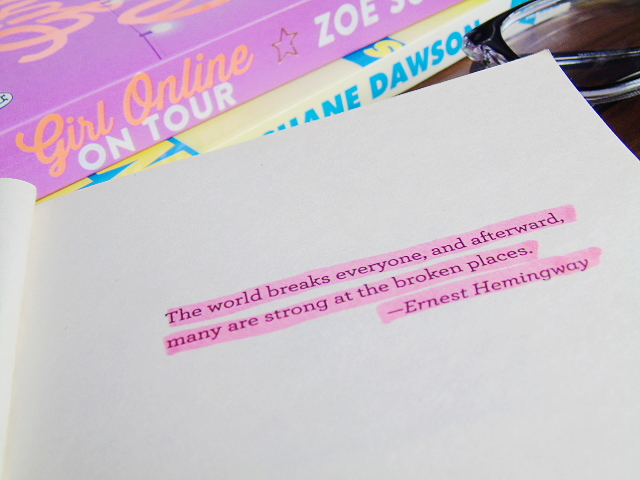 Girl Online
ON TOUR
ZOE
SHANE DAWSON
The world breaks everyone, and afterward,
many are strong at the broken places.
—Ernest Hemingway